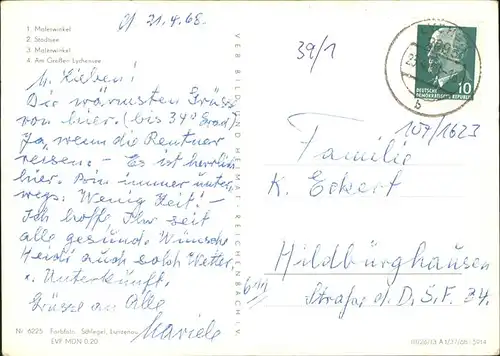 21.4.68.
1. Malerwinkel
2. Stadtsee
3. Malerwinkel
4. Am Großen Lychensee
M. Lieben!
Die wärmsten Grüße
von hier. (bis 34° Grad)
Ja, wenn die Rentner
reisen. - Es ist herrlich
hier. Bin immer unter-
wegs. Wenig Zeit! -
Ich hoffe Ihr seit
alle gesund. Wünsche
Heidi auch solch Wetter
u. Unterkunft.
Grüsse an Alle
Mariele
Nr. 6225 Farbfoto: Schlegel,
EVP MDN 0,20
VEB BILD UND HEIMAT REICHENBACH I. V.
39/1
DEUTSCHE
DEMOKRATISCHE REPUBLIK
10
b
109/1623
Familie
K. Eckert
611
Hildburghausen
Straße d. D.S.F. 34.